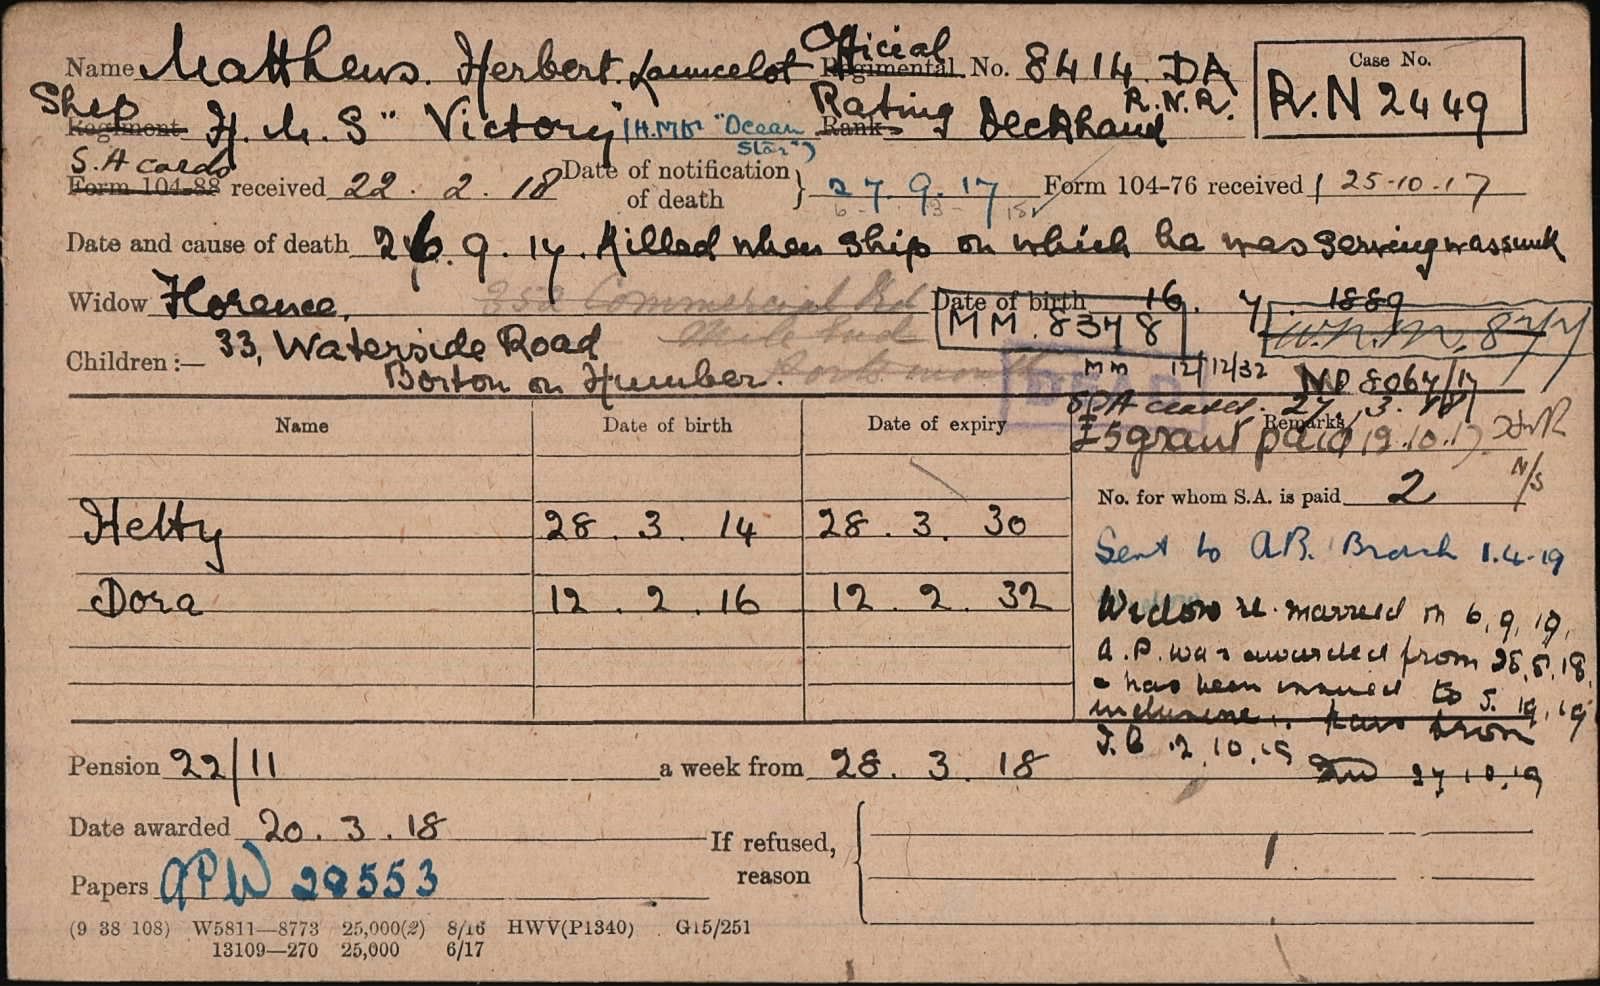 Official
Name Matthews. Herbert. Launcelot Regimental No. 8414 DA
Case No.
R.N 2449
Ship Rating R.N.R.
Regiment H.M.S "Victory" (HMD "Ocean Star") Rank Deckhand
S.A cards
Form 104-88 received 22. 2. 18 Date of notification of death } 27. 9. 17 Form 104-76 received 25-10-17
Date and cause of death 26. 9. 17. Killed when ship on which he was serving was sunk
Widow Florence. 252 Commercial Rd Date of birth 16. 7. 1889
Mile End
Portsmouth
MM. 8378
Children :— 33, Waterside Road
Borton on Humber.
DEAD
MM 12/12/32
8067/17
SA ceases. 27. 3. 18
Name Date of birth Date of expiry Remarks
£5 grant paid 19.10.17.
No. for whom S.A. is paid 2
N/S
Hetty 28. 3. 14 28. 3. 30
Sent to AB. Branch 1.4-19
Dora 12. 2. 16 12. 2. 32
Widow re-married on 6.9.19.
A.P. was awarded from 28.5.18
& has been issued to 5. 19.19
inclusive
12.10.19
27.10.19
Pension 22/11 a week from 28. 3. 18
Date awarded 20. 3. 18
If refused, reason
Papers APW 20553
(9 38 108) W5811—8773 25,000(2) 8/16 HWV(P1340) G15/251
13109—270 25,000 6/17